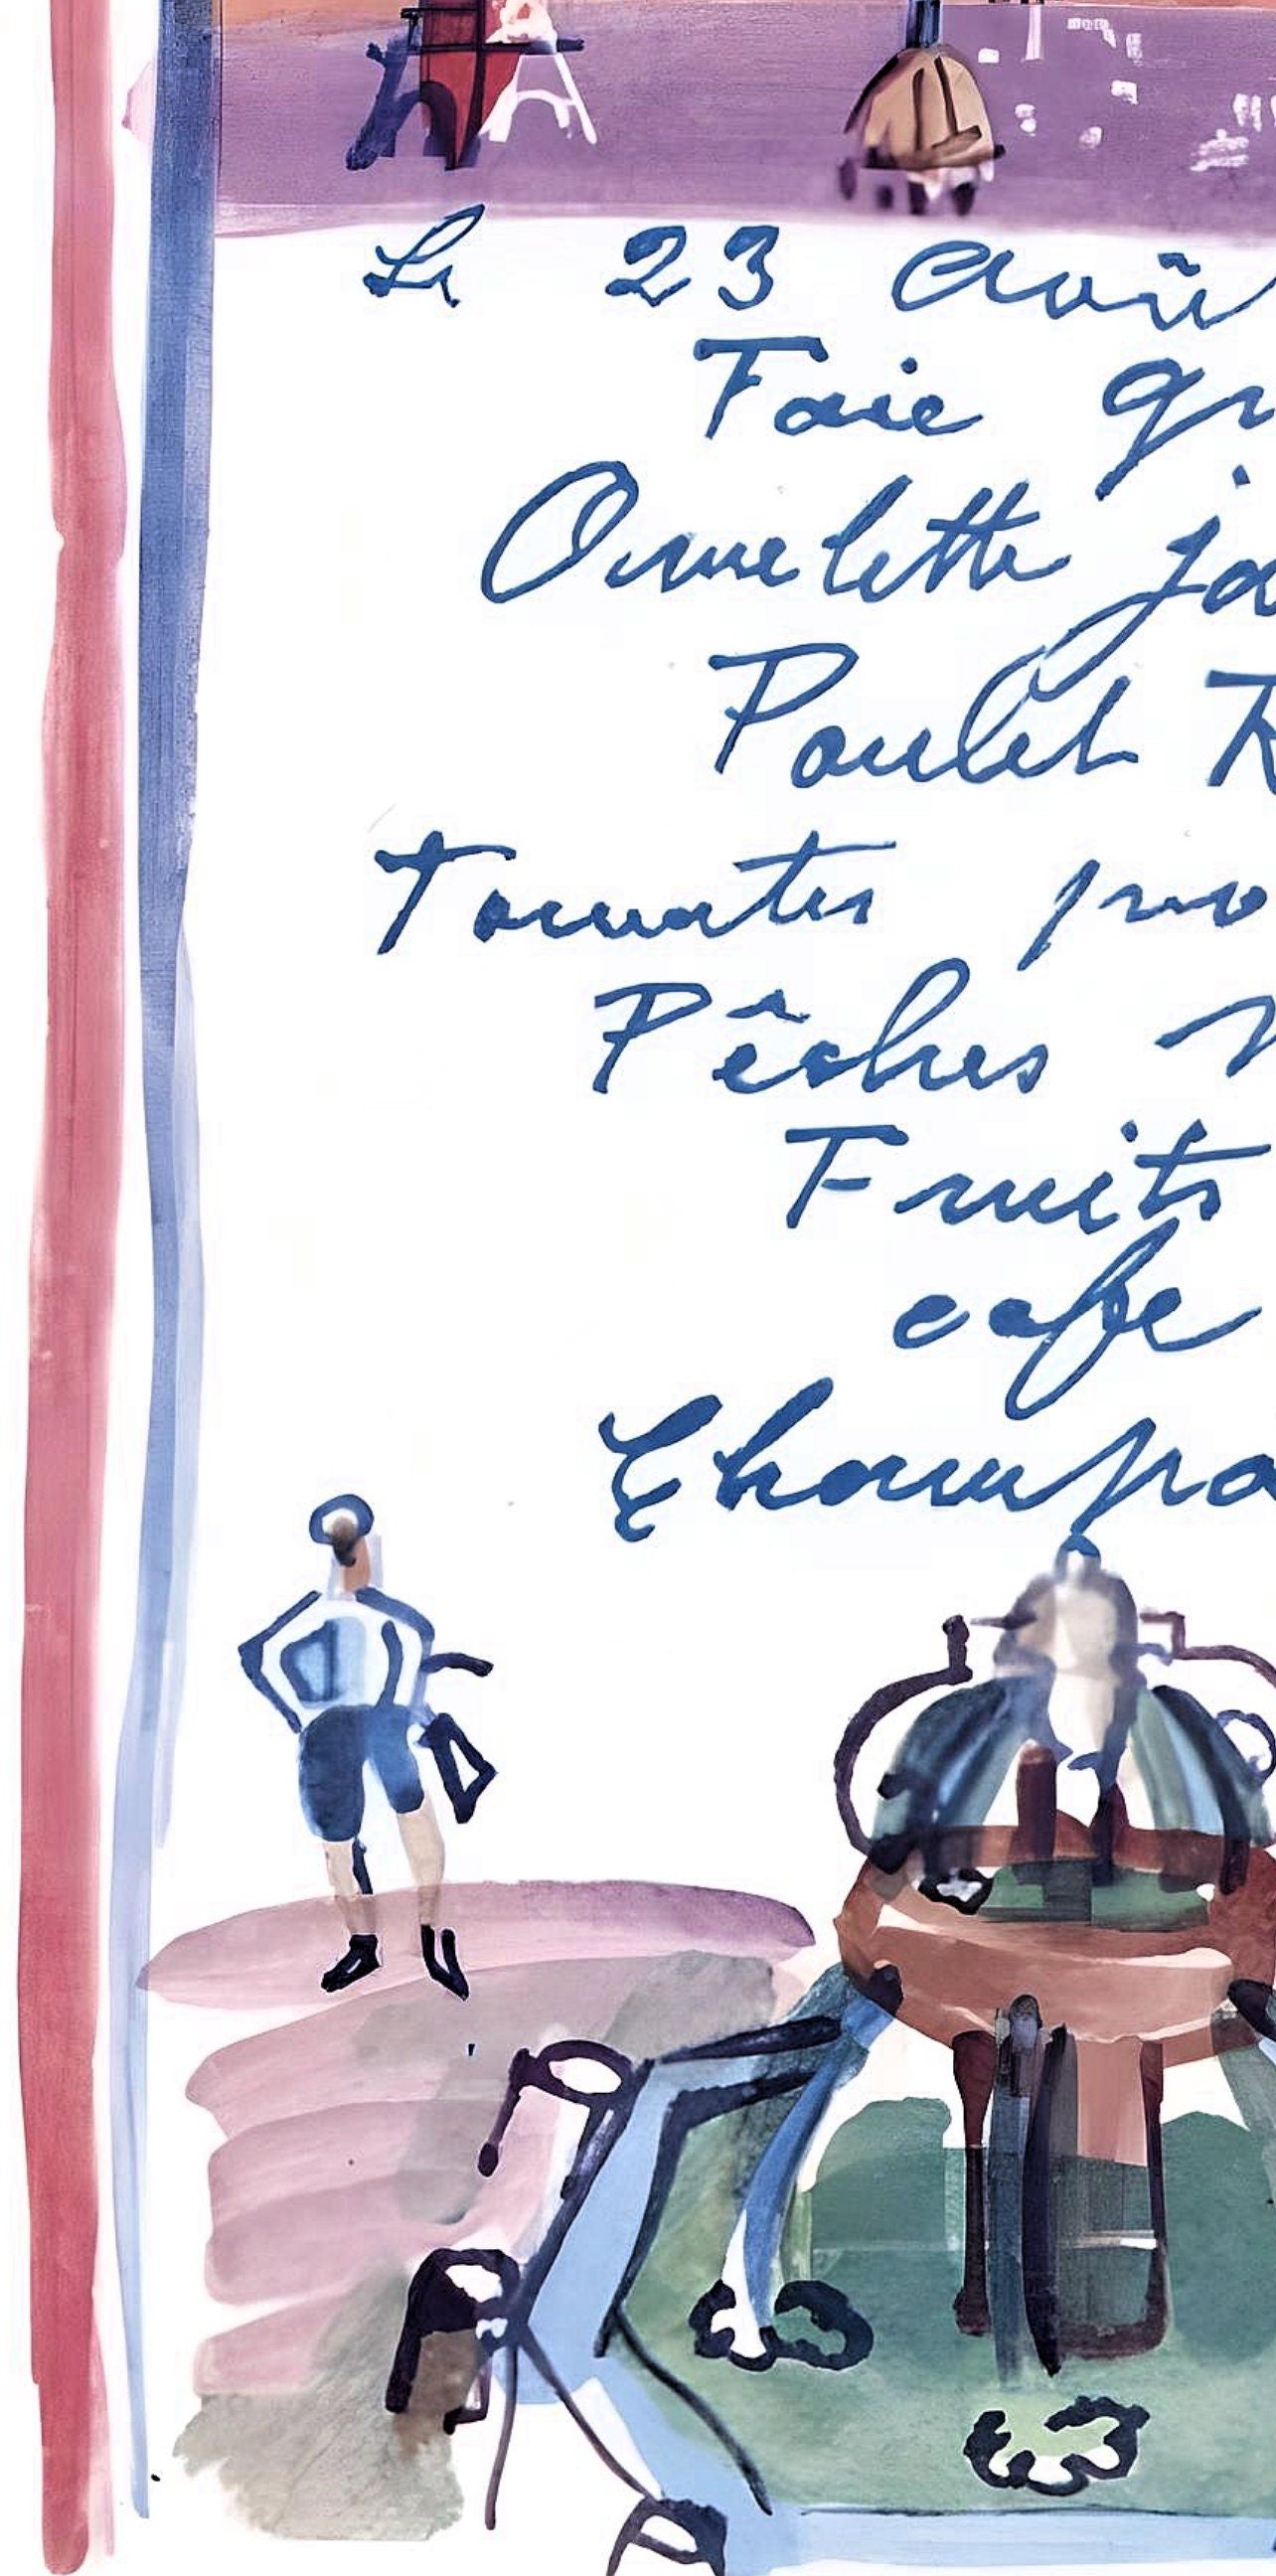 Le 23 aoû
Foie gr
Omelette ja
Poulet R
Tomates pro
Pêches M
Fruits
cafe
Champa